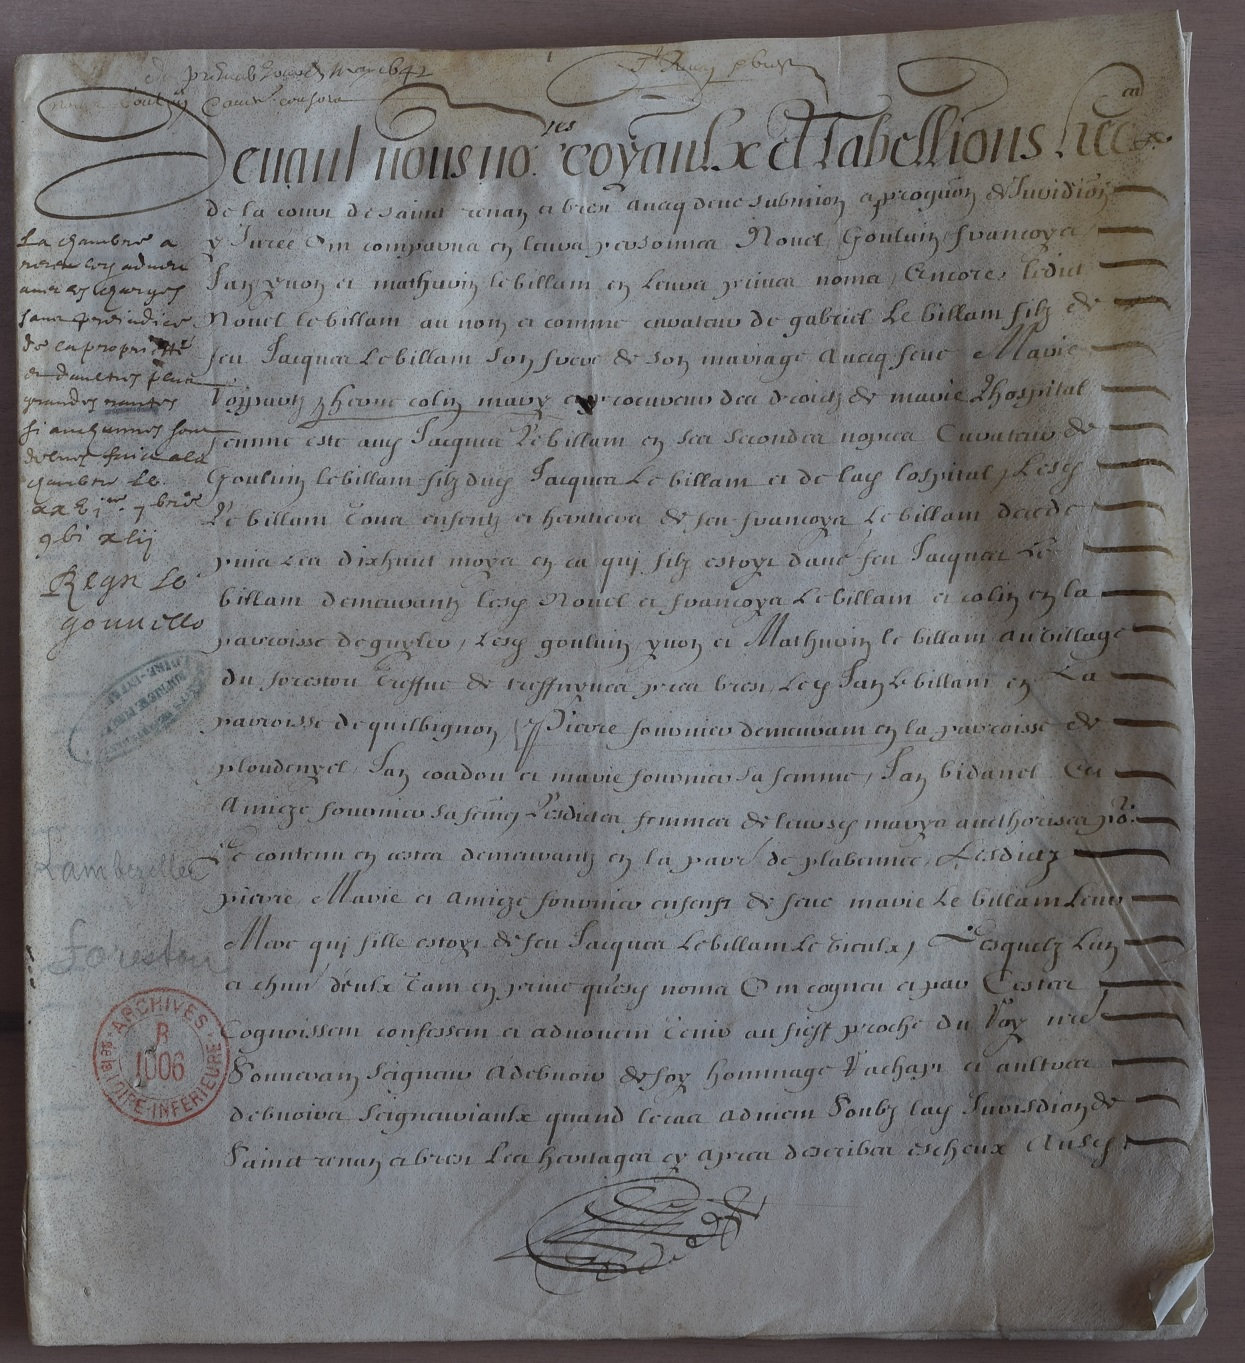 du premier
Devant nous no:res royaulx et Tabellions
de la court de Sainct renan et brest avecq deue submion et prorogaon de Juridion
y Juree Ont comparuz en leurs personnes Nouel, Goulum, francoys
Jan yvon et mathurin le billam en leurs privez noms, Encores ledict
Nouel le billam au nom et comme curateur de gabriel Le billam filz de
feu Jacques Le billam son frere de son mariage avecq feue Marie
herve colin mary
femme este aud Jacques Le billam en ses secondes nopces Curateur de
Goulum le billam filz dud Jacques Le billam et de lad lospital, Lesd
Le billam Tous enfentz et heritiers de feu francoys Le billam decede
puis Les dixhuict moys en ca qui filz estoyt dud feu Jacques Le
billam demeurantz lesd Nouel et francoys Le billam et colin en la
parroisse de guyler, Lesd goulum yvon et Mathurin le billam au village
du foreston Treffve de treffuyuer pres brest, Led Jan Le billam en La
parroisse de quilbignon Pierre fournier demeurant en la parroisse de
ploudenyel, Jan coadou et marie fournier sa femme, Jan bidanel Et
Amice fournier sa feme Lesdictes femmes de leursd marys aucthorisees po:
Le contenu en cestes demeurantz en la parr de plabennec, Lesdictz
pierre Marie et Amice fournier enfens de feue marie Le billam Leur
Mere qui fille estoyt de feu Jacques Le billam Le vieulx, Lesquelz Lun
et chun deulx Tant en prive quesd noms Ont cogneu et par Cestes
Cognoissent confessent et advouent Tenir au fieff proche du Roy nre
Souverain Seigneur A debvoir de foy hommage Rachapt et aultres
debvoirs Seigneuriaulx quand le cas advient Soubz lad Jurisdion de
Sainct renan et brest Les heritages cy apres describez escheux Ausd
La chambre a
receu ces adveu
avecq les charges
sans prejudice
de la propriette
et daultres plus
grandes rantes
si aucunnes sont
deues faict a la
chambre Le
xxbi jer 7bre
gbi xlij
Regn Le
gouvello
Lambezellec
foreston
ARCHIVES
B
1006
de la LOIRE-INFERIEURE